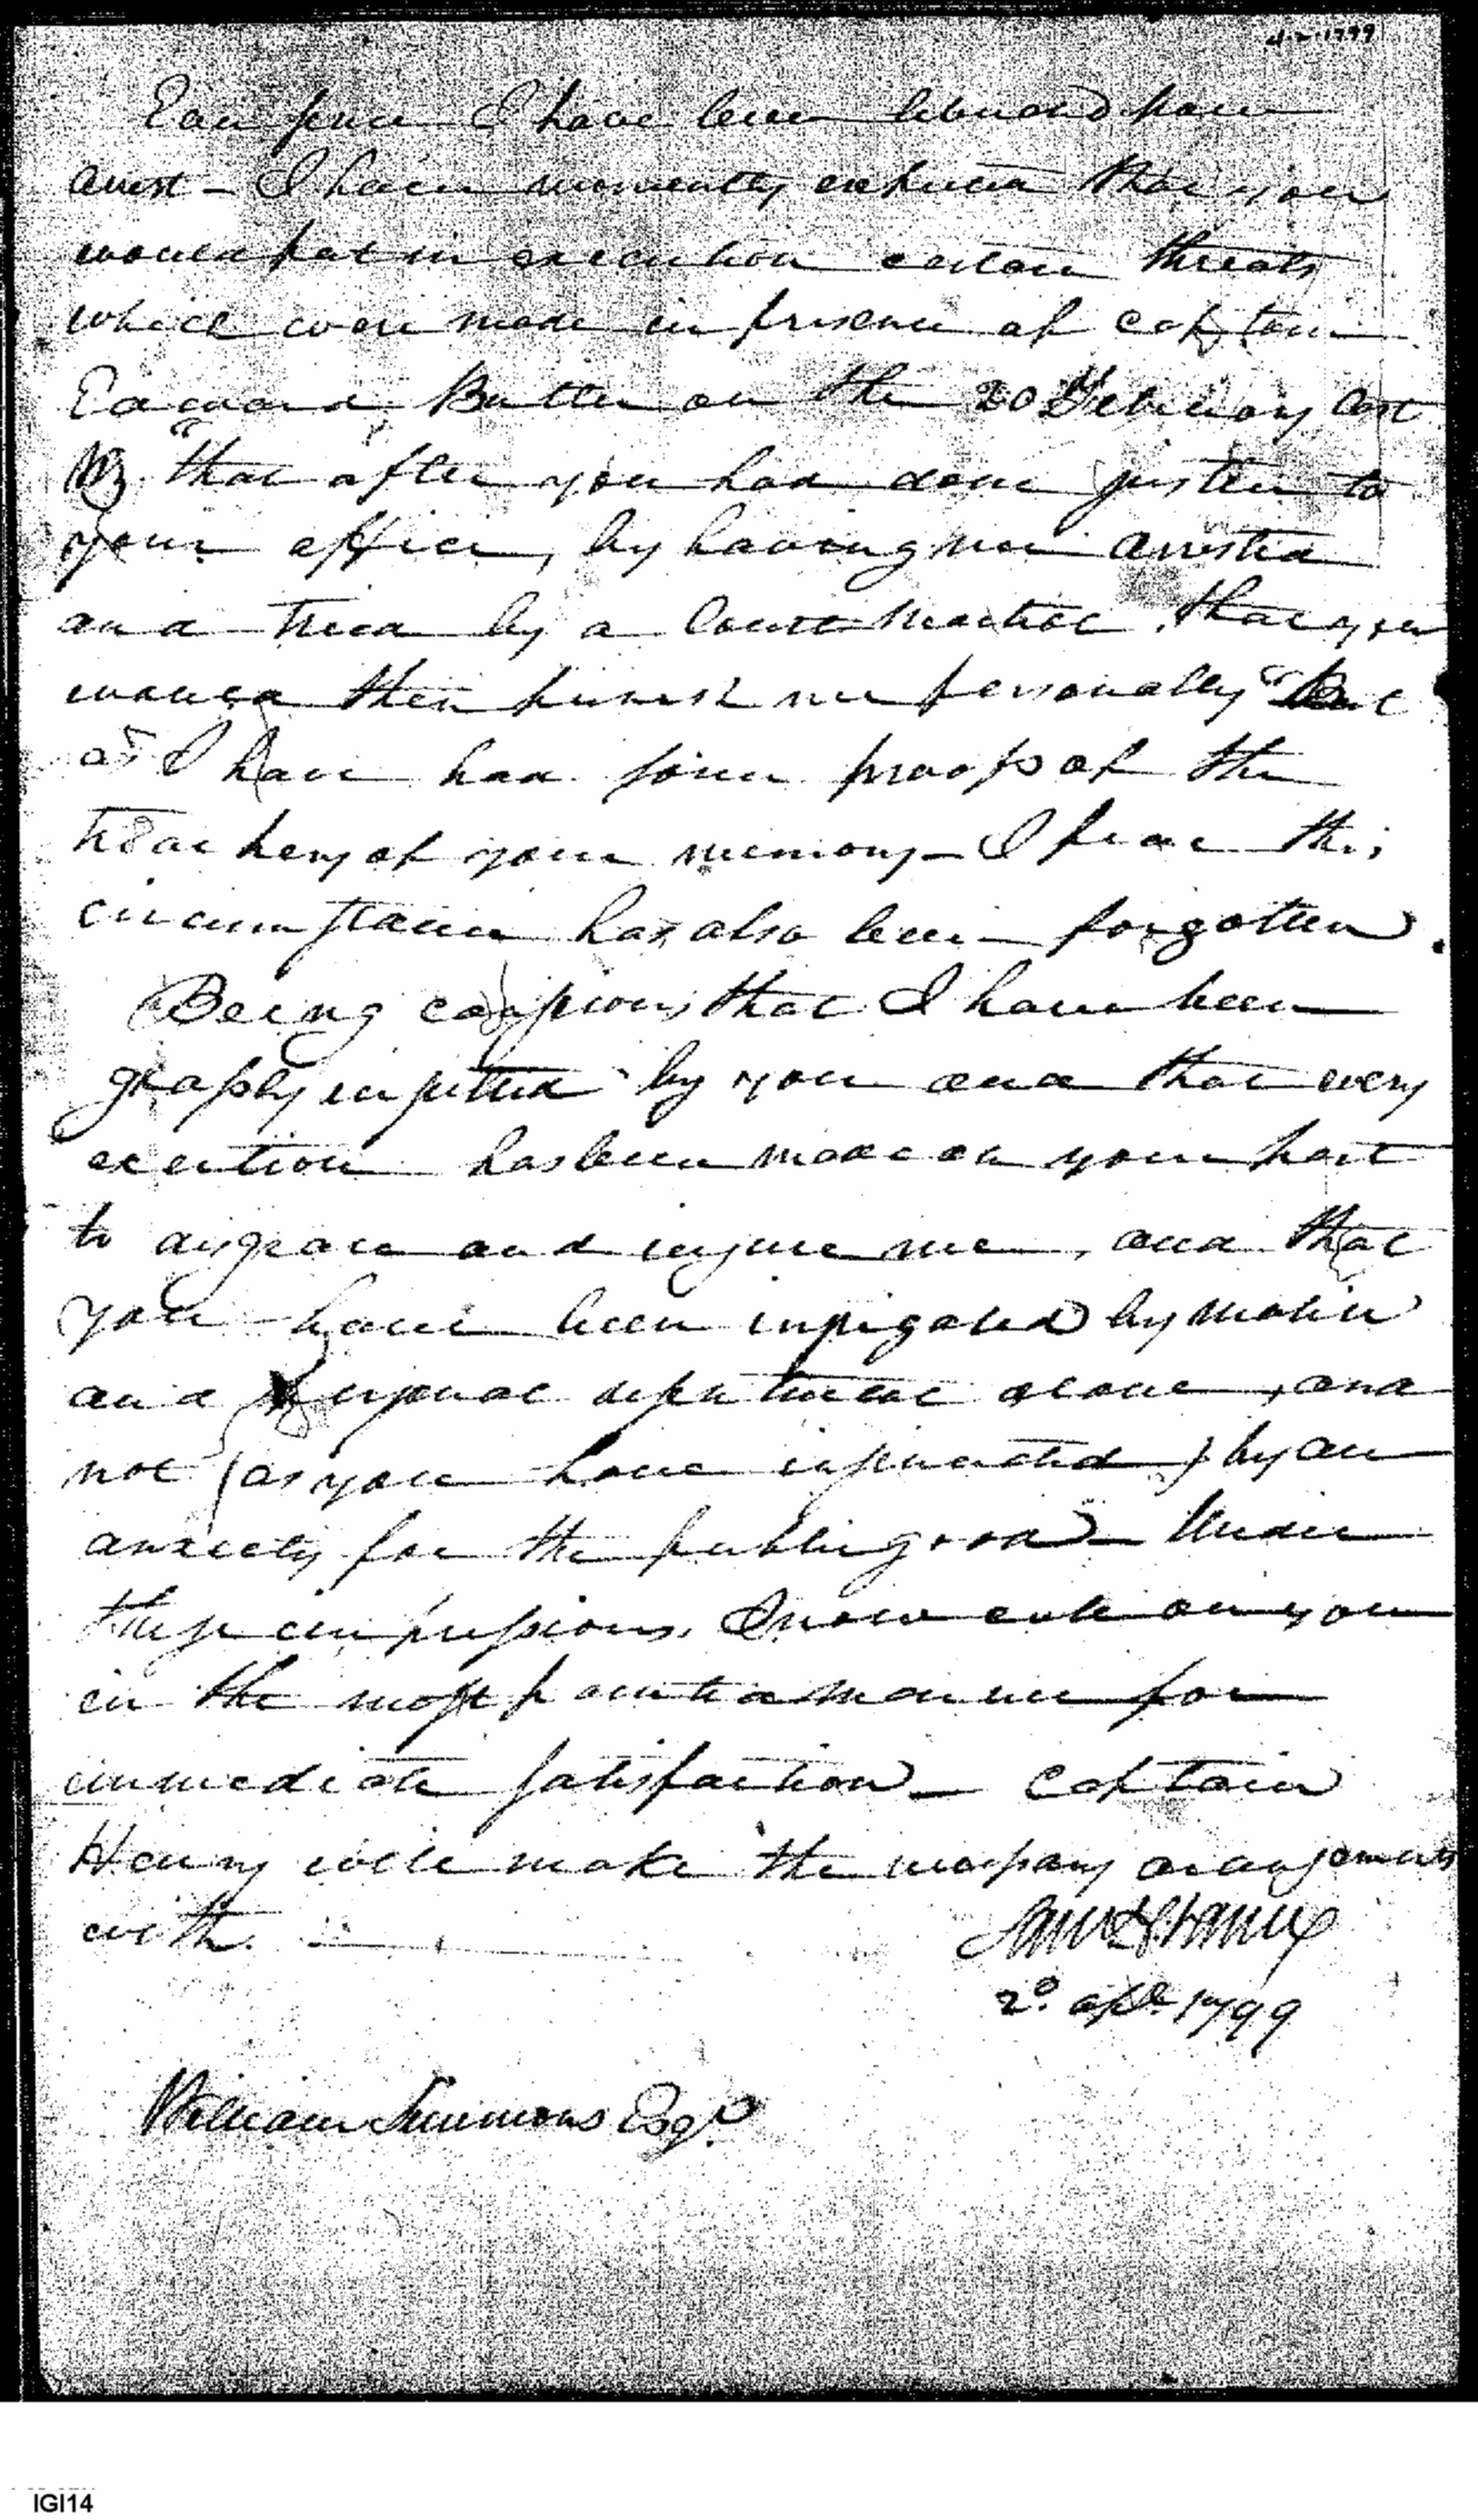 4-2-1799
Ever since I have been liberated from
arrest – I have momently expected that you
would put in execution certain threats
which were made in presence of captain
Edward Butler on the 20th February last
Viz. that after you had done justice to
your office, by having me arrested
and tried by a Court Martial, that you
would then punish me personally" But
as I have had some proofs of the
treachery of your memory – I fear this
circumstance has also been forgotten.
Being conscious that I have been
grossly insulted by you and that every
exertion has been made on your part
to disgrace and injure me, and that
you have been instigated by malice
and personal resentment alone, and
not (as you have insinuated) by an
anxiety for the public good – Under
these impressions, I now call on you
in the most pointed manner for
immediate satisfaction – Captain
Henry will make the necessary arangements
with
2d. apl. 1799
William Simmons Esqr.
IGI14